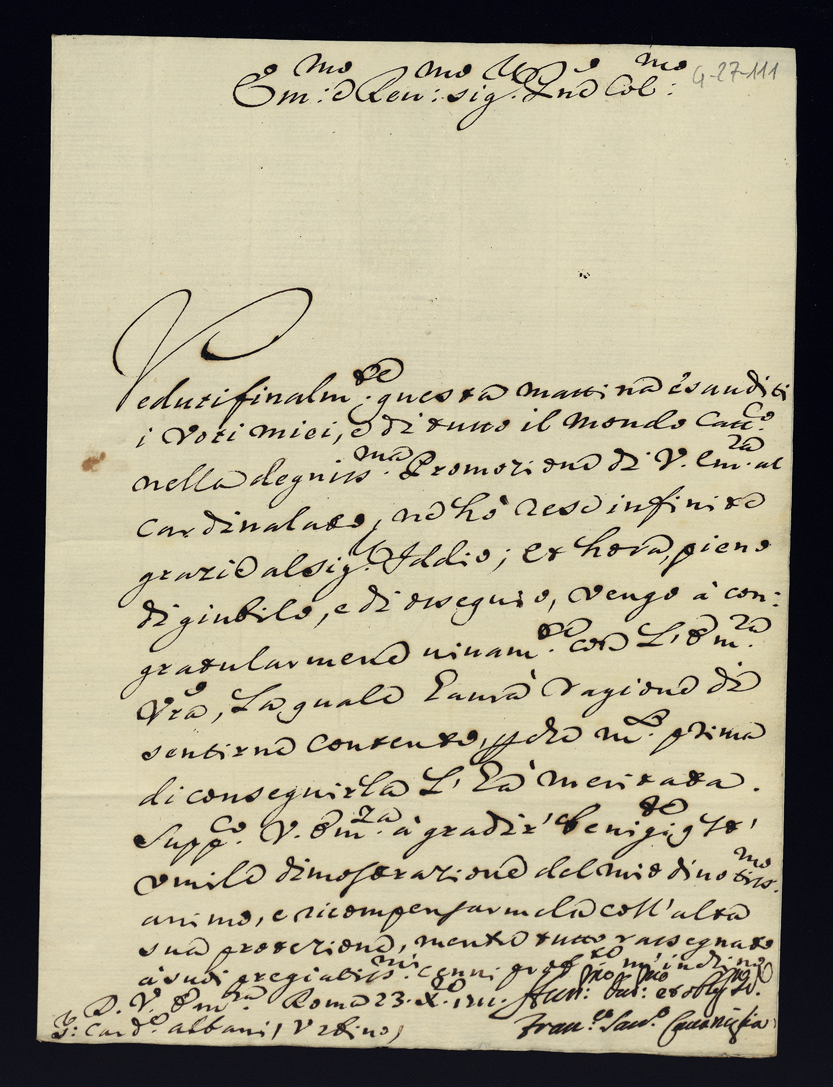 Em:mo e Rev:mo sig.r P.ne Col:mo
G-27-111
Veduti finalm.te questa mattina esauditi
i voti miei, e di tutto il mondo Catt.co
nella degniss.ma Promozione di V. Em.za al
Cardinalato, ne hò rese infinite
grazie al sig.r Iddio; et hora, pieno
di giubilo, e di ossequio, vengo à con:
gratularmene vivam.te con L'Em.za
Vrã, La quale haurà ragione di
sentirne contento, prima
di conseguirla L'hà meritata.
Supp.co V. Em.za à gradir'
umile dimostrazione del mio divotiss.mo
animo, e ricompensarmela coll'alta
sua protezione, mentre tutto rassegnato
à suoi pregiatiss.mi cenni m'inchino
D. V. Em.za Roma 23. X.bre 1711.
S: Card.e Albani, Urbino)
Fran.co